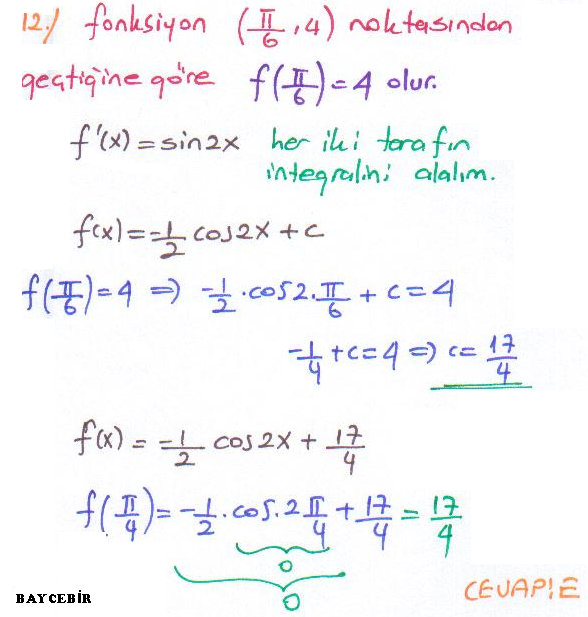 12./ fonksiyon (π/6, 4) noktasından
geçtiğine göre f(π/6)=4 olur.
f'(x)=sin2x her iki tarafın
integralini alalım.
f(x)=-1/2 cos2x+c
f(π/6)=4 ⇒ -1/2·cos2·π/6+c=4
-1/4+c=4 ⇒ c=17/4
f(x)=-1/2 cos2x+17/4
f(π/4)=-1/2·cos·2π/4+17/4=17/4
0
0
CEVAP!E
BAYCEBİR